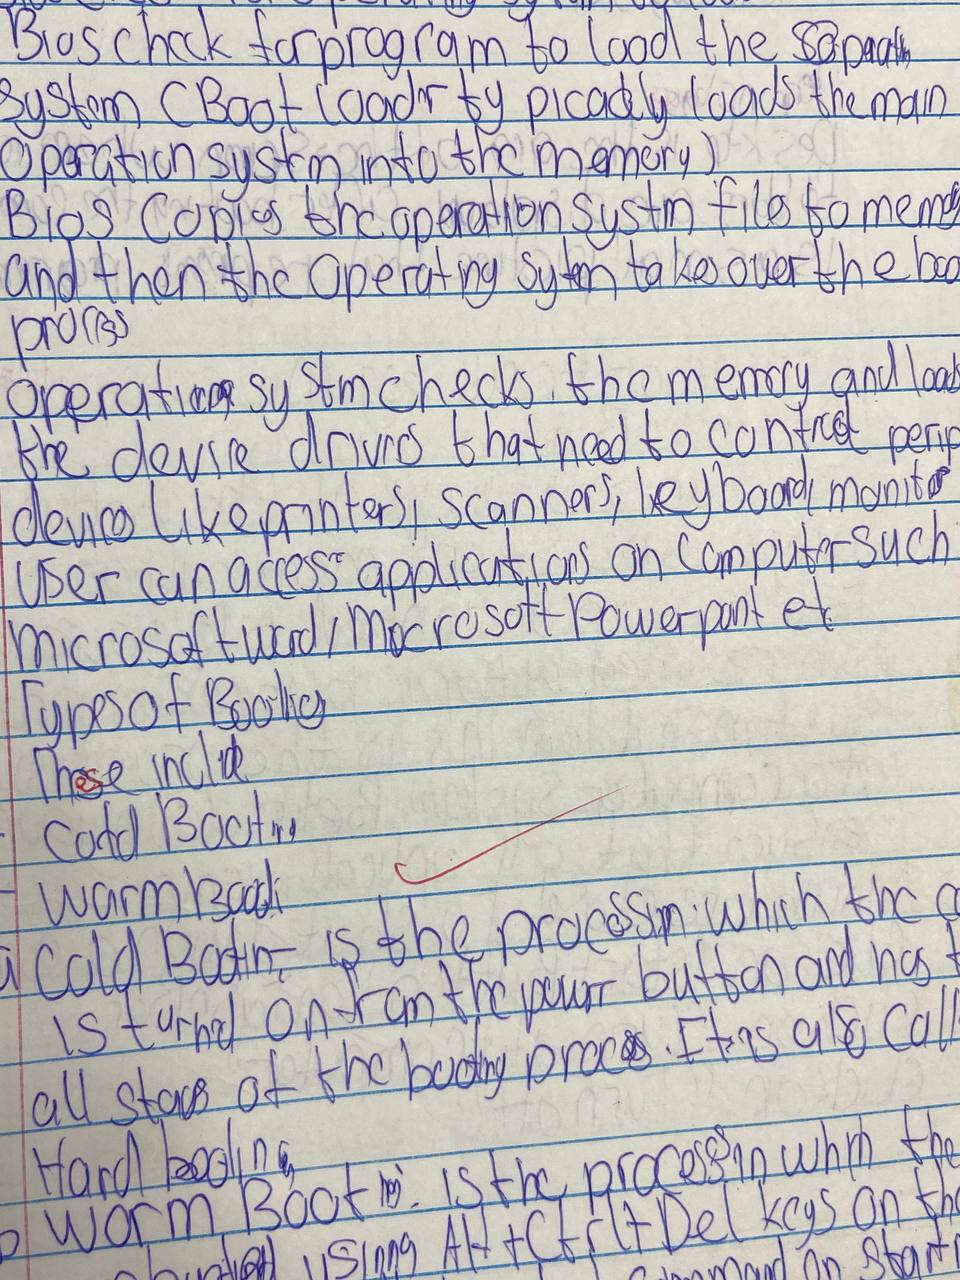 Bios check for program to load the
system (Boot loadr ty picadly loads the main
Operation systm into the memory)
Bios Copies the operation systm files to mem
and then the Operating sytem takes over the boo
process
Operation systm checks the memory and load
the device drivrs that need to control perip
device like printers, scanners, keyboard, monitor
User can access applications on Computer such
microsoft word / Macrosoft Powerpoint etc
Types of Booting
These include
- Cold Booting
- Warm Booti
Cold Bootin- is the process in which the co
is turned on from the power button and has t
all stages of the booting process. It is also Call
Hard booting
b Warm Booting. is the process in which the
using Alt + Ctrl + Del keys on the
on Start